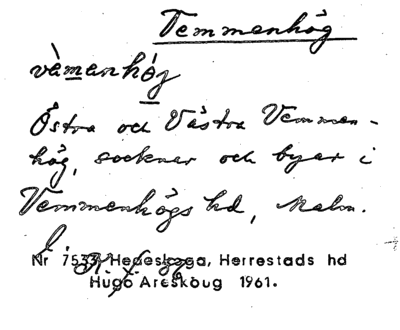 Vemmenhög
vàmanhóg
Östra och Västra Vemmen-
hög, socknar och byar i
Vemmenhögs hd, Malm.
l.
Nr 7533 Hedeskoga, Herrestads hd
Hugo Areskoug 1961.